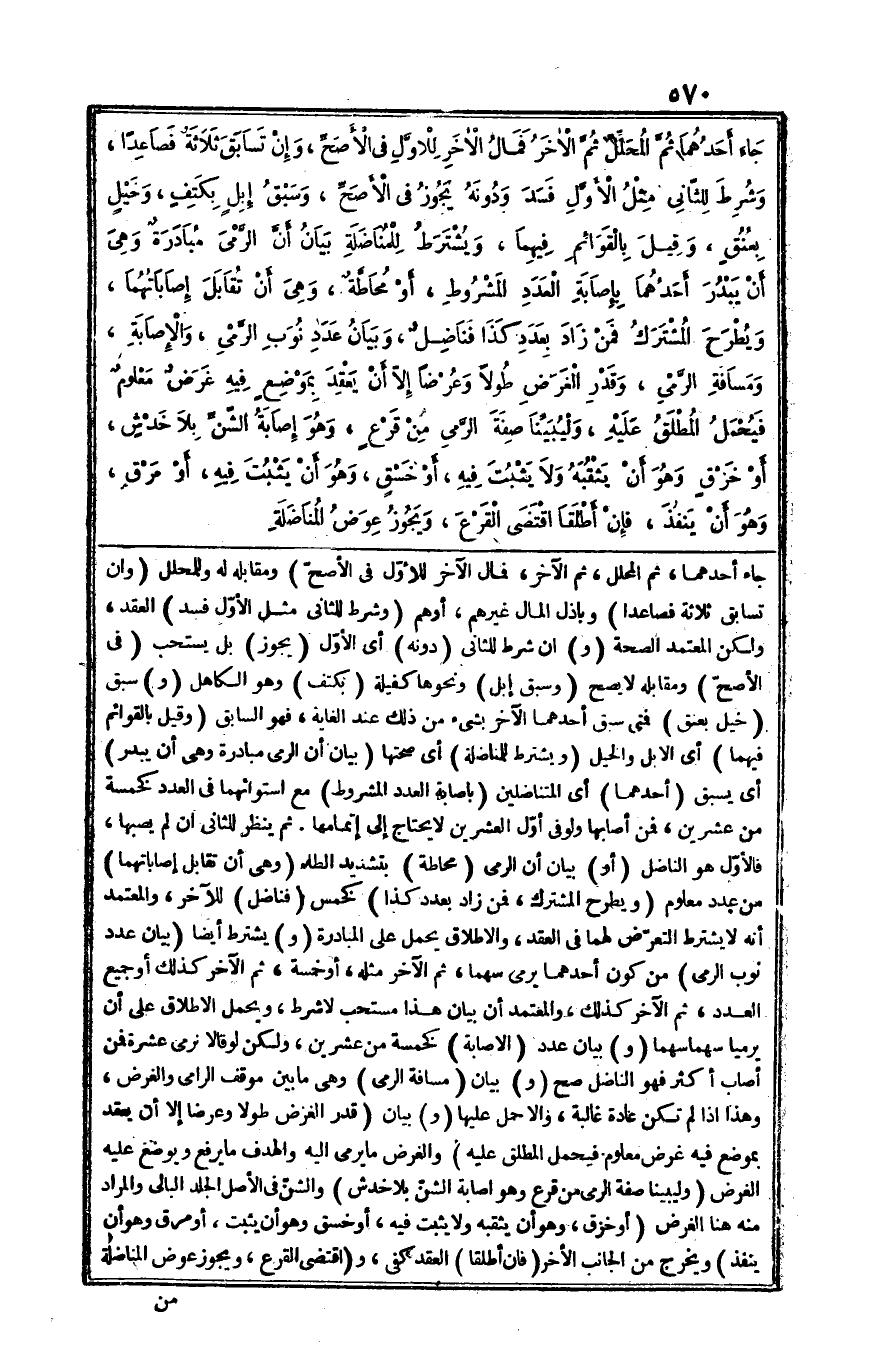 ٥٧٠
جَاءَ أَحَدُهُمَا، ثُمَّ الْمُحَلِّلُ ثُمَّ الْآخَرُ فَمَالُ الْآخَرِ لِلْأَوَّلِ فِى الْأَصَحِّ ، وَإِنْ تَسَابَقَ ثَلَاثَةٌ فَصَاعِدًا ،
وَشُرِطَ لِلثَّانِى مِثْلُ الْأَوَّلِ فَسَدَ وَدُونَهُ يَجُوزُ فِى الْأَصَحِّ ، وَسَبْقُ إِبِلٍ بِكَتِفٍ ، وَخَيْلٍ
بِعُنُقٍ ، وَقِيلَ بِالْقَوَائِمِ فِيهِمَا ، وَيُشْتَرَطُ لِلْمُنَاضَلَةِ بَيَانُ أَنَّ الرَّمْىَ مُبَادَرَةٌ وَهِىَ
أَنْ يَبْدُرَ أَحَدُهُمَا بِإِصَابَةِ الْعَدَدِ الْمَشْرُوطِ ، أَوْ مُحَاطَّةٌ ، وَهِىَ أَنْ تُقَابَلَ إِصَابَاتُهُمَا ،
وَيُطْرَحَ الْمُشْتَرَكُ فَمَنْ زَادَ بِعَدَدِ كَذَا فَنَاضِلٌ ، وَبَيَانُ عَدَدِ نُوَبِ الرَّمْىِ ، وَالْإِصَابَةِ ،
وَمَسَافَةِ الرَّمْىِ ، وَقَدْرِ الْغَرَضِ طُولاً وَعُرْضًا إِلاَّ أَنْ يَعْقِدَ بِمَوْضِعٍ فِيهِ غَرَضٌ مَعْلُومٌ
فَيُحْمَلُ الْمُطْلَقُ عَلَيْهِ ، وَلْيُبَيِّنَا صِفَةَ الرَّمىِ مِنْ قَرْعٍ ، وَهُوَ إِصَابَةُ الشَّنِّ بِلاَ خَدْشٍ ،
أَوْ خَزْقٍ وَهُوَ أَنْ يَثْقُبَهُ وَلاَ يَثْبُتَ فِيهِ ، أَوْ خَسْقٍ ، وَهُوَ أَنْ يَثْبُتَ فِيهِ ، أَوْ مَرْقٍ ،
وَهُوَ أَنْ يَنْفُذَ ، فَإِنْ أَطْلَقَا اقْتَضَى الْقَرْعَ ، وَيَجُوزُ عِوَضُ الْمُنَاضَلَةِ
جاء أحدهما ، ثم المحلل ، ثم الآخر ، فمال الآخر للأوّل فى الأصحّ ) ومقابله له وللمحلل ( وان
تسابق ثلاثة فصاعدا ) وباذل المال غيرهم ، أوهم ( وشرط للثانى مثل الأوّل فسد ) العقد ،
ولكن المعتمد الصحة ( و ) ان شرط للثانى ( دونه ) أى الأوّل ( يجوز ) بل يستحب ( فى
الأصحّ ) ومقابله لايصح ( وسبق إبل ) ونحوها كفيلة ( بكتف ) وهو الكاهل ( و ) سبق
( خيل بعنق ) فمتى سبق أحدهما الآخر بشىء من ذلك عند الغاية ، فهو السابق ( وقيل بالقوائم
فيهما ) أى الابل والخيل ( ويشترط للمناضلة ) أى صحتها ( بيان أن الرمى مبادرة وهى أن يبدر )
أى يسبق ( أحدهما ) أى المتناضلين ( باصابة العدد المشروط ) مع استوائهما فى العدد كخمسة
من عشرين ، فمن أصابها ولوفى أوّل العشرين لايحتاج إلى إتمامها . ثم ينظر للثانى ان لم يصبها ،
فالأوّل هو الناضل ( أو ) بيان أن الرمى ( محاطة ) بتشديد الطاء ( وهى أن تقابل إصاباتهما )
من عدد معلوم ( ويطرح المشترك ، فمن زاد بعدد كذا ) كخمس ( فناضل ) للآخر ، والمعتمد
أنه لايشترط التعرّض لهما فى العقد ، والاطلاق يحمل على المبادرة ( و ) يشترط أيضا ( بيان عدد
نوب الرمى ) من كون أحدهما يرمى سهما ، ثم الآخر مثله ، أوخمسة ، ثم الآخر كذلك أوجميع
العدد ، ثم الآخر كذلك ، والمعتمد أن بيان هذا مستحب لاشرط ، ويحمل الاطلاق على أن
يرميا سهماسهما ( و ) بيان عدد ( الاصابة ) كخمسة من عشرين ، ولكن لوقالا نرمى عشرة فمن
أصاب أكثر فهو الناضل صح ( و ) بيان ( مسافة الرمى ) وهى مابين موقف الرامى والغرض ،
وهذا اذا لم تكن عادة غالبة ، والا حمل عليها ( و ) بيان ( قدر الغرض طولا وعرضا إلا أن يعقد
بموضع فيه غرض معلوم فيحمل المطلق عليه ) والغرض مايرمى اليه والهدف مايرفع ويوضع عليه
الغرض ( وليبينا صفة الرمى من قرع وهو اصابة الشنّ بلاخدش ) والشنّ فى الأصل الجلد البالى والمراد
منه هنا الغرض ( أوخزق ، وهوأن يثقبه ولايثبت فيه ، أوخسق وهوأن يثبت ، أومرق وهوأن
ينفذ ) ويخرج من الجانب الأخر ( فان أطلقا ) العقد كفى ، و ( اقتضى القرع ، ويجوز عوض المناضلة
من